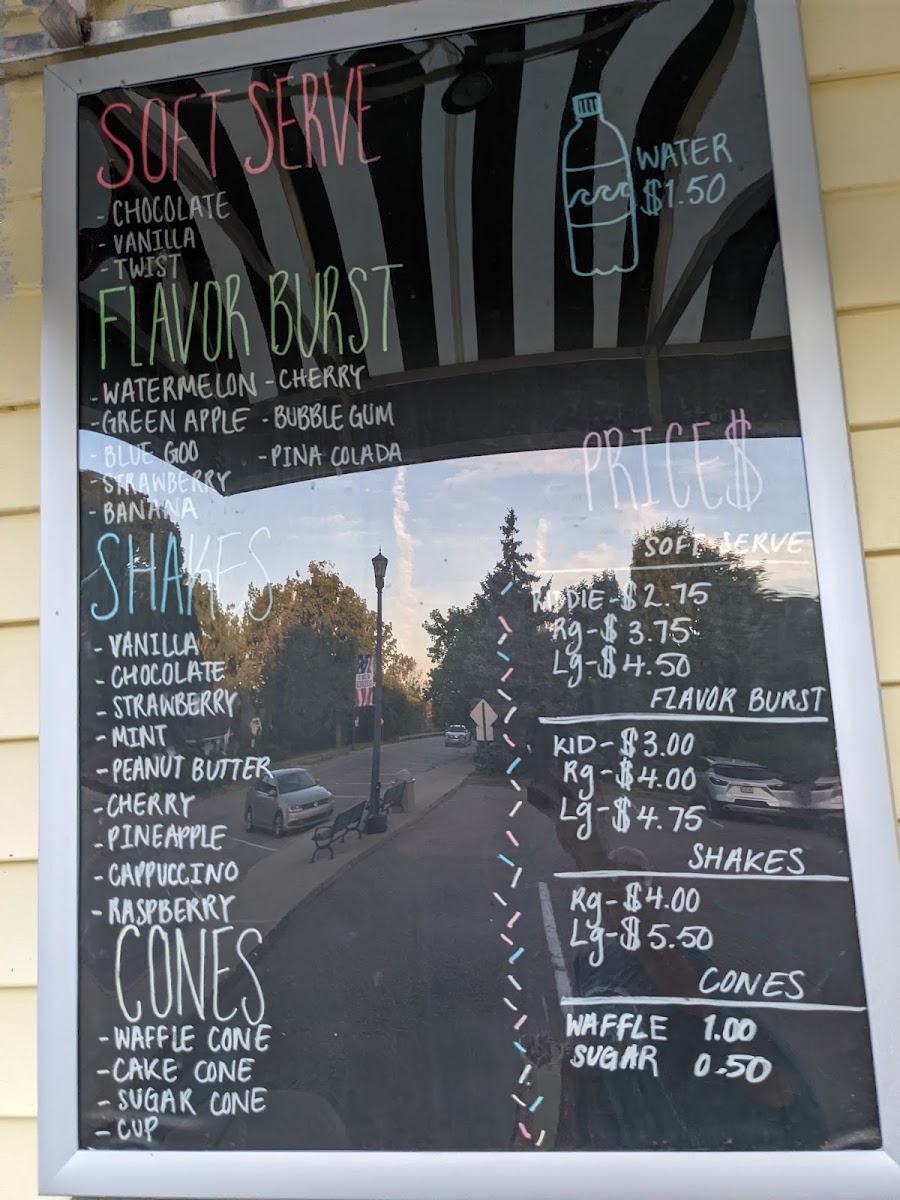 SOFT SERVE
- CHOCOLATE
- VANILLA
- TWIST
WATER
$1.50
FLAVOR BURST
- WATERMELON - CHERRY
- GREEN APPLE - BUBBLE GUM
- BLUE GOO - PINA COLADA
- STRAWBERRY
- BANANA
SHAKES
- VANILLA
- CHOCOLATE
- STRAWBERRY
- MINT
- PEANUT BUTTER
- CHERRY
- PINEAPPLE
- CAPPUCCINO
- RASPBERRY
CONES
- WAFFLE CONE
- CAKE CONE
- SUGAR CONE
- CUP
PRICE$
SOFT SERVE
KIDDIE - $2.75
Rg - $3.75
Lg - $4.50
FLAVOR BURST
KID - $3.00
Rg - $4.00
Lg - $4.75
SHAKES
Rg - $4.00
Lg - $5.50
CONES
WAFFLE 1.00
SUGAR 0.50